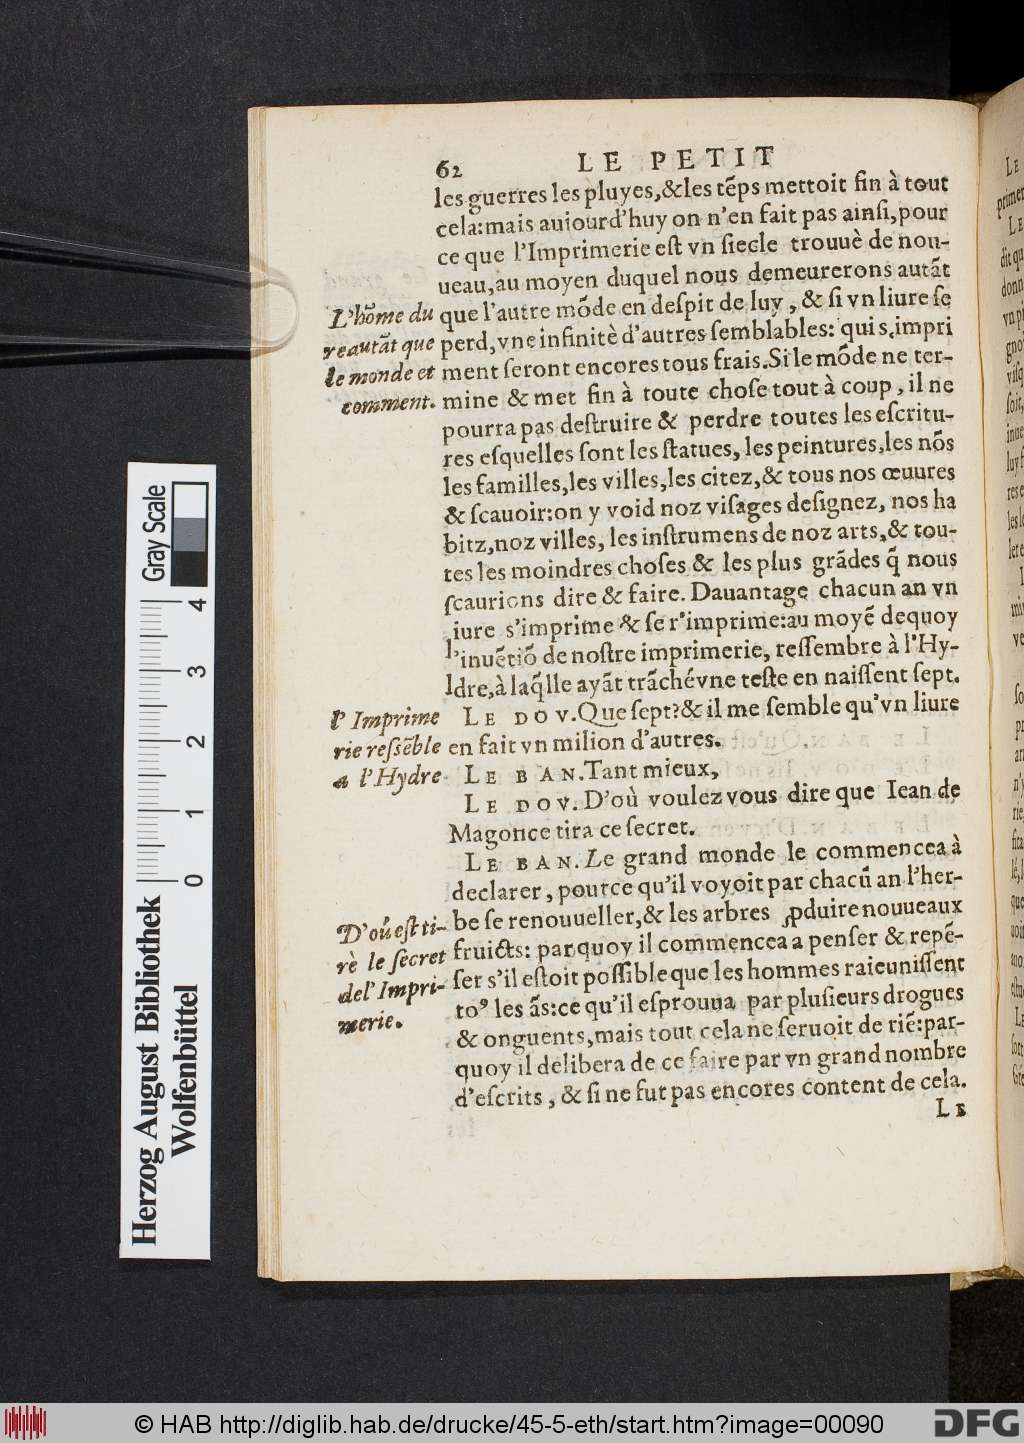 62 LE PETIT
les guerres les pluyes,&les tẽps mettoit fin à tout
cela:mais auiourd'huy on n'en fait pas ainſi,pour
ce que l'Imprimerie eſt vn ſiecle trouuè de nou-
ueau,au moyen duquel nous demeurerons autãt
que l'autre mõde en deſpit de luy, & ſi vn liure ſe
perd,vne infinitè d'autres ſemblables: qui s,impri
ment ſeront encores tous frais.Si le mõde ne ter-
mine & met fin à toute choſe tout à coup, il ne
pourra pas deſtruire & perdre toutes les eſcritu-
res eſquelles ſont les ſtatues, les peintures,les nõs
les familles,les villes,les citez,& tous nos œuures
& ſcauoir:on y void noz viſages deſignez, nos ha
bitz,noz villes, les inſtrumens de noz arts,& tou-
tes les moindres choſes & les plus grãdes q̃ nous
ſcaurions dire & faire. Dauantage chacun an vn
iure s'imprime & ſe r'imprime:au moyẽ dequoy
l'inuẽtiõ de noſtre imprimerie, reſſembre à l'Hy-
ldre,à laq̃lle ayãt trãchévne teſte en naiſſent ſept.
LE DOV.Que ſept?& il me ſemble qu'vn liure
en fait vn milion d'autres.
LE BAN.Tant mieux,
LE DOV. D'où voulez vous dire que Iean de
Magonce tira ce ſecret.
LE BAN.Le grand monde le commencea à
declarer, pource qu'il voyoit par chacũ an l'her-
be ſe renouueller,& les arbres ꝓduire nouueaux
fruicts: parquoy il commencea a penſer & repẽ-
ſer s'il eſtoit poſſible que les hommes raieuniſſent
to⁹ les ãs:ce qu'il eſprouua par pluſieurs drogues
& onguents,mais tout cela ne ſeruoit de riẽ:par-
quoy il delibera de ce faire par vn grand nombre
d'eſcrits, & ſi ne fut pas encores content de cela.
LE
L'hõme du
re autãt que
le monde et
comment.
l'Imprime
rie reſſẽble
a l'Hydre
D'où eſt ti-
rè le ſecret
de l'Impri-
merie.
Gray Scale
0 1 2 3 4
Herzog August Bibliothek
Wolfenbüttel
© HAB http://diglib.hab.de/drucke/45-5-eth/start.htm?image=00090
DFG